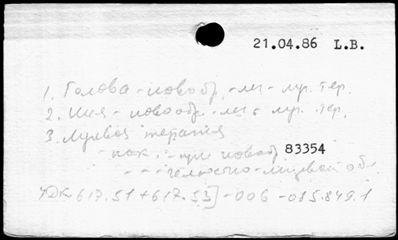 21.04.86 L.B.
1. Голова - новообр. - леч - луч. тер.
2. Шея - новообр. - леч. луч. тер.
3. Лучевая терапия
- пок. - при новообр 83354
- - челюстно-лицевой обл.
УДК 617.51+617.53]-006-085.849.1